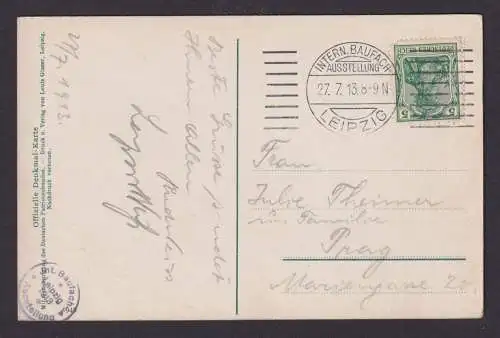 27/7 1913.
Offizielle Denkmal-Karte
des Deutschen Patriotenbundes. — Druck u. Verlag von Louis Glaser, Leipzig.
Nachdruck verboten.
Beste Grüße sendet
Ihnen allen
INTERN. BAUFACH
AUSSTELLUNG
27.7.13.8-9N
LEIPZIG
DEUTSCHES REICH
5 5
Frau
Julie Theimer
Familie
Prag
Mariengasse
Int. Baufach
Ausstellung
Leipzig